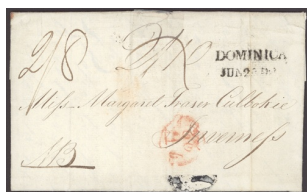 2/8
DOMINICA
Miss Margaret Fraser Culbokie
Inverness
NB